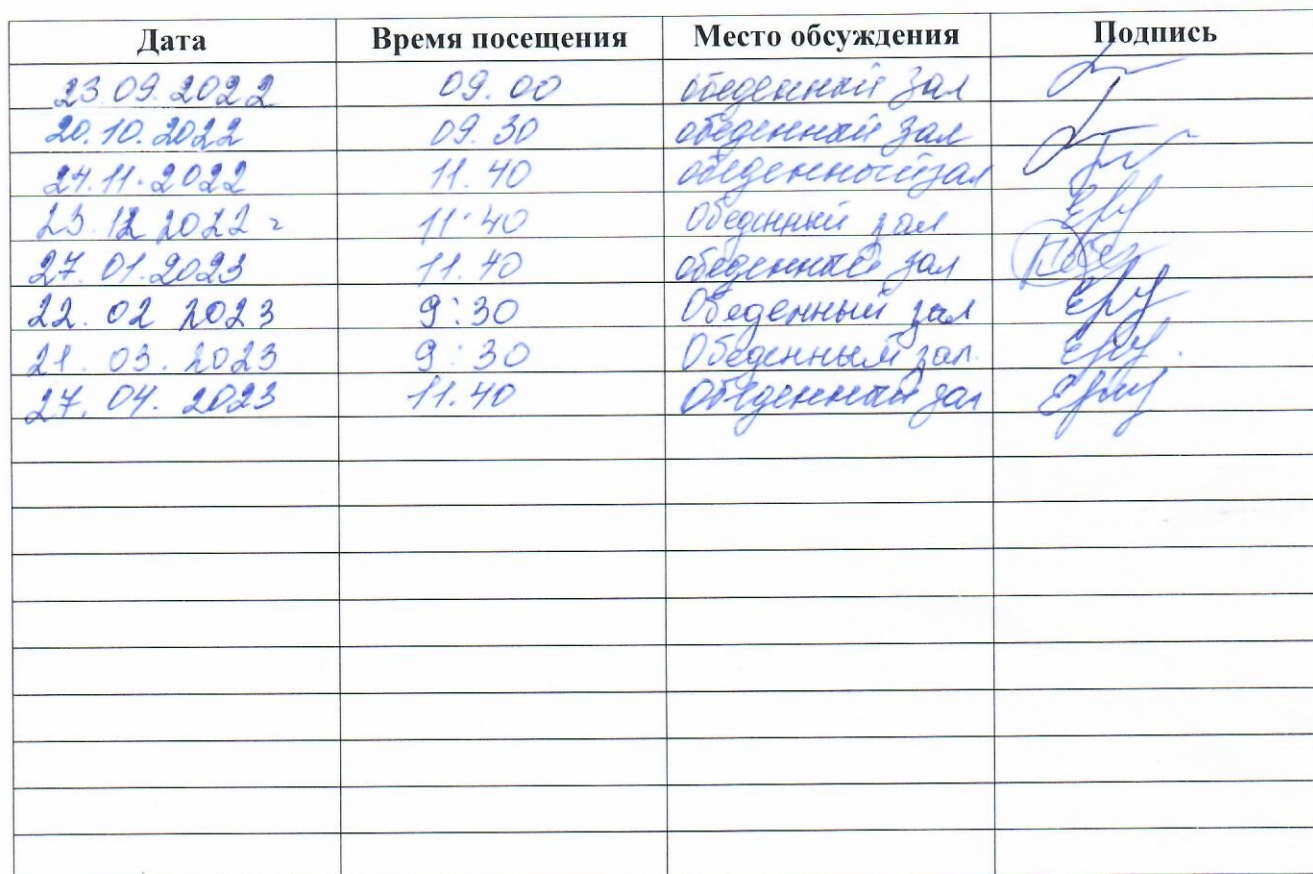 Дата Время посещения Место обсуждения Подпись
23.09.2022 09.00 обеденный зал
20.10.2022 09.30 обеденный зал
24.11.2022 11.40 обеденный зал
23.12 2022 г 11:40 Обеденный зал
27.01.2023 11.40 обеденный зал
22.02 2023 9:30 Обеденный зал
21.03.2023 9:30 Обеденный зал.
27.04.2023 11.40 Обеденный зал